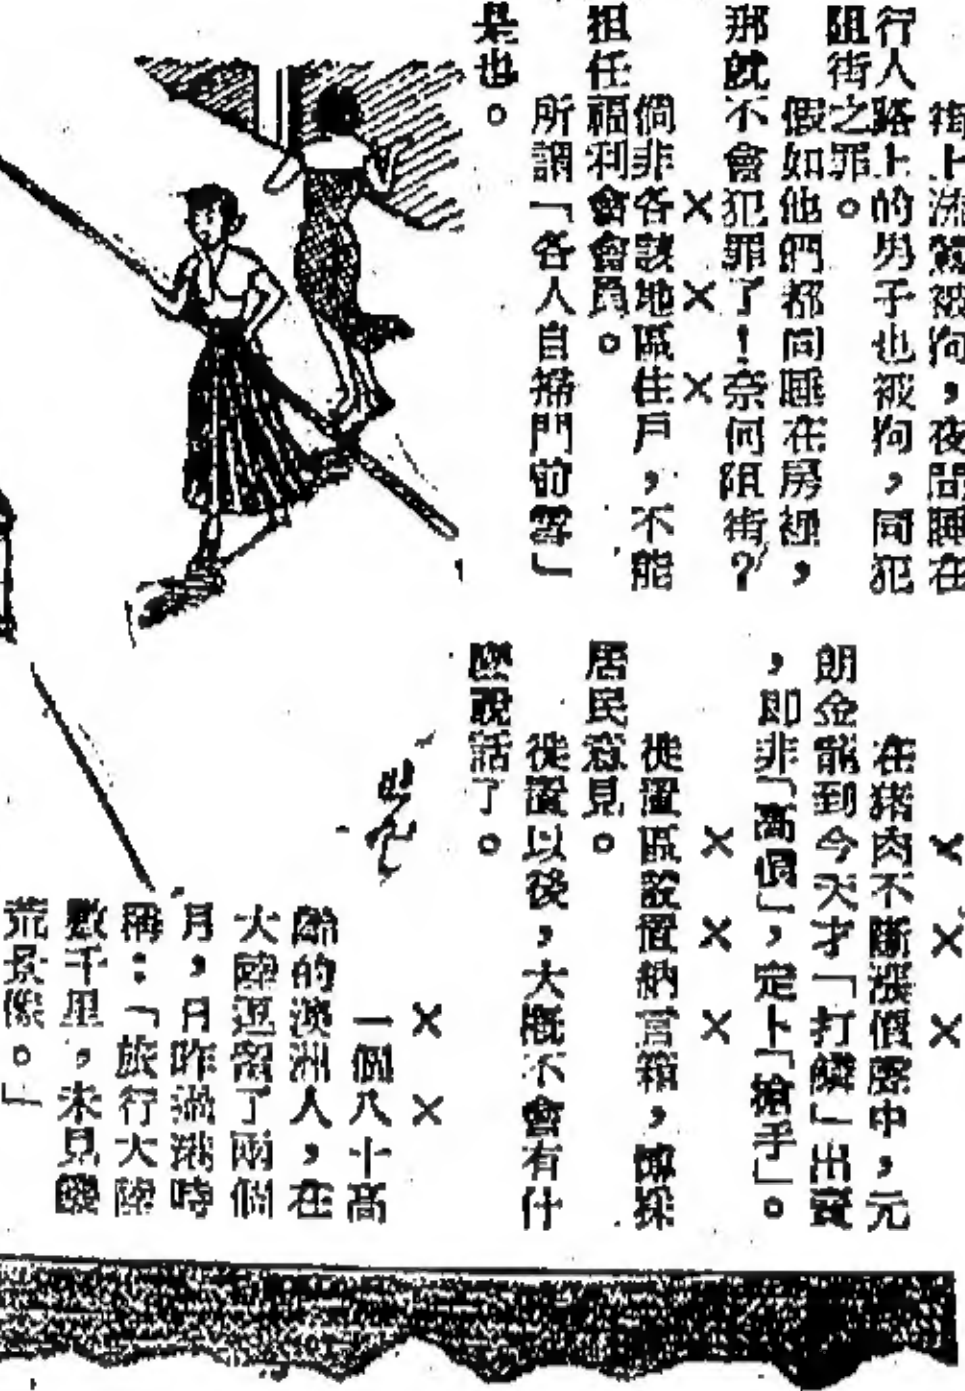 街上流鶯被拘，夜間睡在
行人路上的男子也被拘，同犯
阻街之罪。
假如他們都同睡在房裡，
那就不會犯罪了！奈何阻街？
×××
倘非各該地區住戶，不能
担任福利會會員。
所謂「各人自掃門前雪」
是也。
×××
在猪肉不斷漲價聲中，元
朗金龍到今天才「打鱗」出賣
，即非「高價」，定卜「搶手」。
×××
徙置區設置納言箱，
居民意見。
徙置以後，大概不會有什
麼說話了。
××
一個八十高
齡的澳洲人，在
大陸逗留了兩個
月，日昨過港時
稱：「旅行大陸
數千里，未見饑
荒景像。」